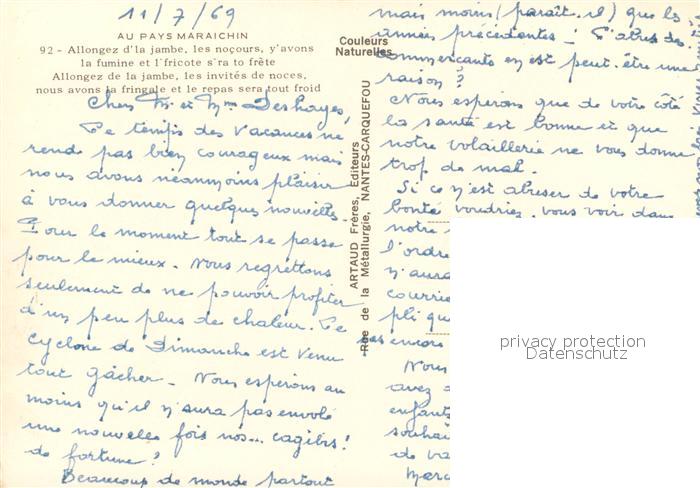 11/7/69
AU PAYS MARAICHIN
92 - Allongez d'la jambe, les noçours, y'avons
la fumine et l'fricote s'ra to frête
Allongez de la jambe, les invités de noces,
nous avons la fringale et le repas sera tout froid
Cher Mr et Mme Deshayes,
Ce temps des vacances ne
rend pas bien courageux mais
nous avons néanmoins plaisir
à vous donner quelques nouvelles
Pour le moment tout se passe
pour le mieux. Nous regrettons
seulement de ne pouvoir profiter
d'un peu plus de chaleur. Ce
cyclone de Dimanche est venu
tout gâcher. Nous espérons au
moins qu'il n'aura pas envolé
une nouvelle fois nos... cagibis!
de fortune?
Beaucoup de monde partout
Couleurs
Naturelles
ARTAUD Frères, Editeurs
Rue de la Métallurgie, NANTES-CARQUEFOU
mais moins (paraît-il) que les
années précédentes! L'abus des
commerçants en est peut-être une
raison?
Nous espérons que de votre côté
la santé est bonne et que
notre volaillerie ne vous donne
trop de mal.
Si ce n'est abuser de votre
bonté voudriez-vous voir dans
notre
l'ordre
n'aura
courrie
pli qu
encore
Nous
avez
enfants
souhai
de va
Merc
privacy protection
Datenschutz